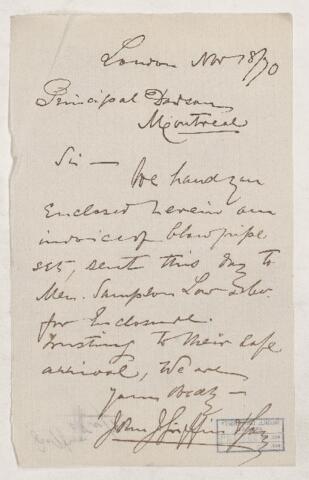 London Nov 18/70
Principal Dawson
Montreal
Sir —
We hand you
Enclosed herein our
invoice of blowpipe
set, sent this day to
Mess. Sampson Low & Co.
for Enclosure.
Trusting to their safe
arrival, We are
Yours Obdtly —
John J Griffin & Sons